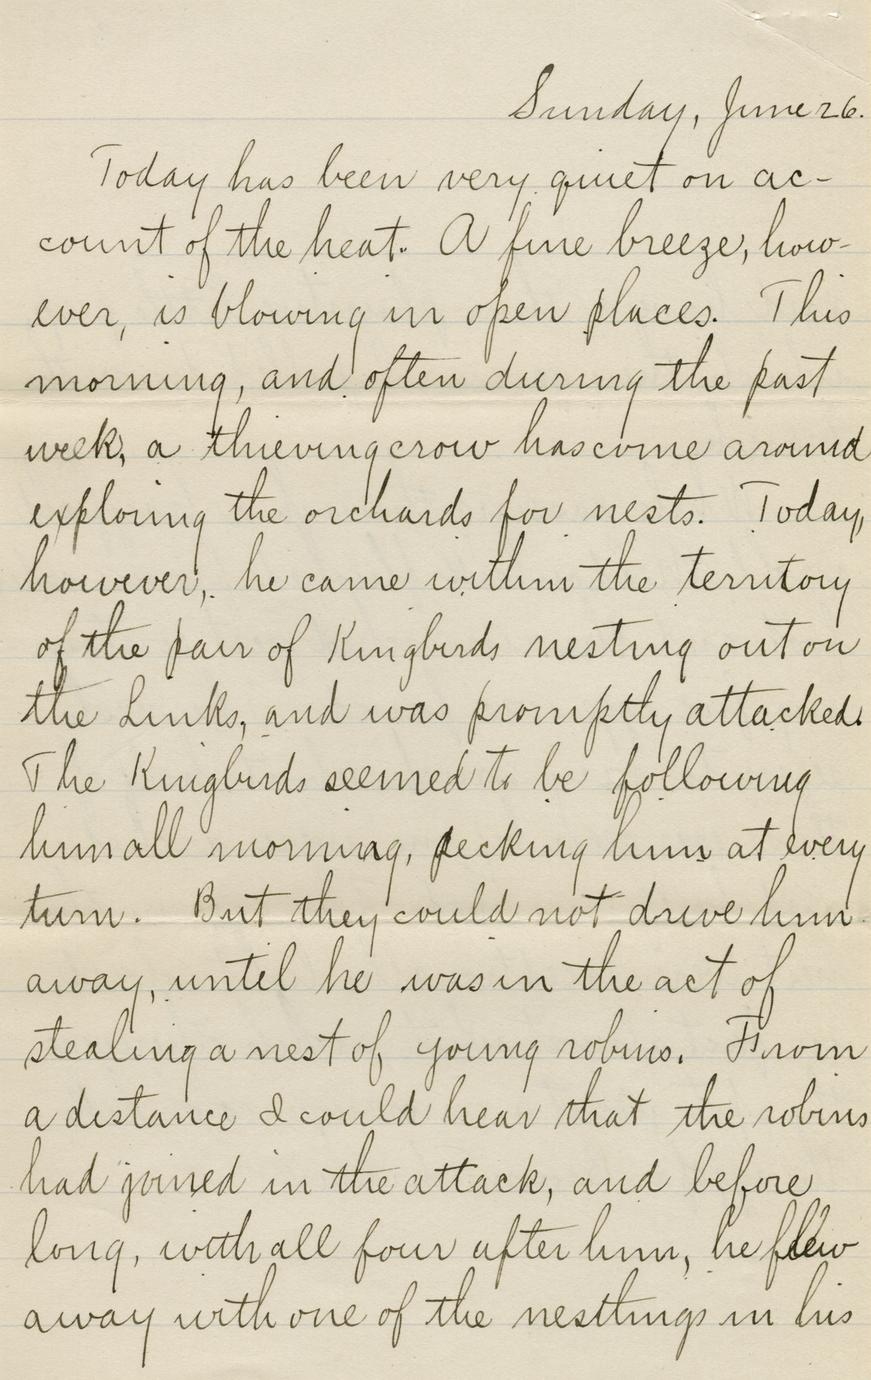 Sunday, June 26.
Today has been very quiet on ac-
count of the heat. A fine breeze, how-
ever, is blowing in open places. This
morning, and often during the past
week, a thieving crow has come around
exploring the orchards for nests. Today,
however, he came within the territory
of the pair of Kingbirds nesting out on
the Links, and was promptly attacked.
The Kingbirds seemed to be following
him all morning, pecking him at every
turn. But they could not drive him
away, until he was in the act of
stealing a nest of young robins. From
a distance I could hear that the robins
had joined in the attack, and before
long, with all four after him, he flew
away with one of the nestlings in his